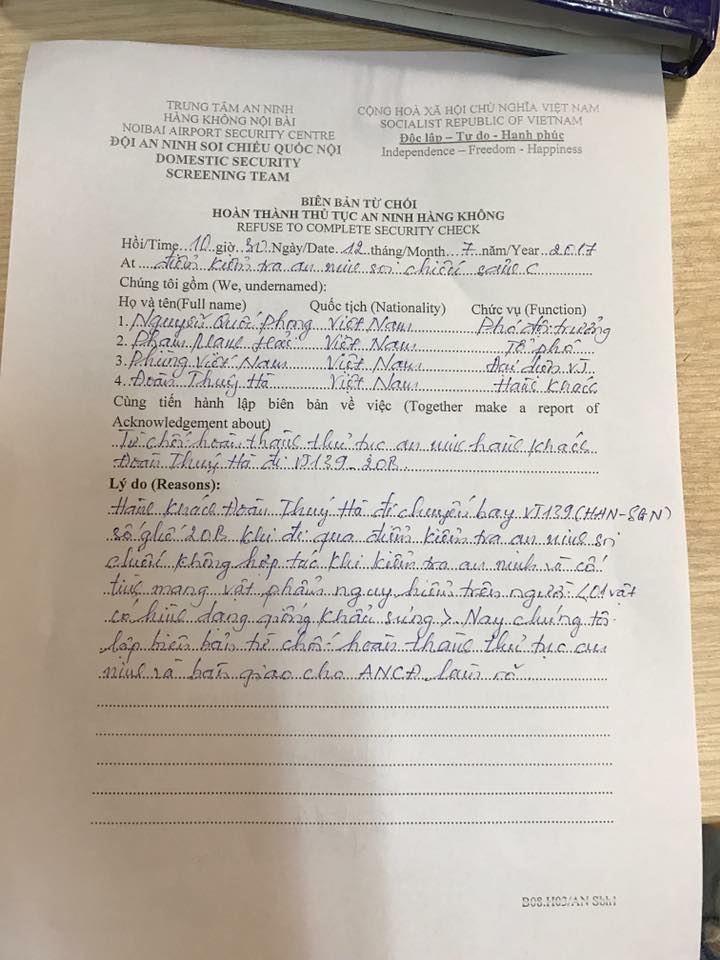 TRUNG TÂM AN NINH
HÀNG KHÔNG NỘI BÀI
NOIBAI AIRPORT SECURITY CENTRE
ĐỘI AN NINH SOI CHIẾU QUỐC NỘI
DOMESTIC SECURITY
SCREENING TEAM
CỘNG HOÀ XÃ HỘI CHỦ NGHĨA VIỆT NAM
SOCIALIST REPUBLIC OF VIETNAM
Độc lập – Tự do - Hạnh phúc
Independence – Freedom - Happiness
BIÊN BẢN TỪ CHỐI
HOÀN THÀNH THỦ TỤC AN NINH HÀNG KHÔNG
REFUSE TO COMPLETE SECURITY CHECK
Hồi/Time 10 giờ 30 Ngày/Date 12 tháng/Month 7 năm/Year 2017
At điểm kiểm tra an ninh soi chiếu sảnh C
Chúng tôi gồm (We, undernamed):
Họ và tên(Full name) Quốc tịch (Nationality) Chức vụ (Function)
1. Nguyễn Quốc Phong Việt Nam Phó đội trưởng
2. Phạm Mạnh Hải Việt Nam Tổ phó
3. Phùng Việt Nam Việt Nam Đại diện VJ
4. Đoàn Thuý Hà Việt Nam Hành khách
Cùng tiến hành lập biên bản về việc (Together make a report of
Acknowledgement about)
Từ chối hoàn thành thủ tục an ninh hành khách
Đoàn Thuý Hà đi VJ139 - 20B
Lý do (Reasons):
Hành khách Đoàn Thuý Hà đi chuyến bay VJ139 (HAN-SGN)
số ghế 20B khi đi qua điểm kiểm tra an ninh soi
chiếu không hợp tác khi kiểm tra an ninh và cố
tình mang vật phẩm nguy hiểm trên người < 01 vật
có hình dạng giống khẩu súng >. Nay chúng tôi
lập biên bản từ chối hoàn thành thủ tục an
ninh và bàn giao cho ANCĐ làm rõ
B08.H03/AN Sbh1